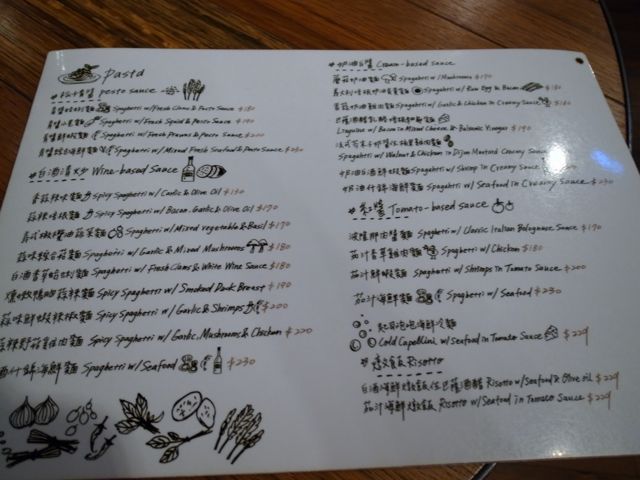 pasta
pesto sauce
Spaghetti w/ Fresh Clams & Pesto Sauce $180
Spaghetti w/ Fresh Squid & Pesto Sauce $190
Spaghetti w/ Fresh Prawns & Pesto Sauce $200
Spaghetti w/ Mixed Fresh Seafood & Pesto Sauce $230
白酒清炒 Wine-based Sauce
蒜辣味麵 Spicy Spaghetti w/ Garlic & Olive Oil $150
蒜辣培根麵 Spicy Spaghetti w/ Bacon, Garlic & Olive Oil $170
Spaghetti w/ Mixed Vegetable & Basil $170
蒜味綜合菇麵 Spaghetti w/ Garlic & Mixed Mushrooms $180
Spaghetti w/ Fresh Clams & White Wine Sauce $180
Spicy Spaghetti w/ Smoked Duck Breast $190
蒜味鮮蝦辣椒麵 Spicy Spaghetti w/ Garlic & Shrimps $200
Spicy Spaghetti w/ Garlic, Mushrooms & Chicken $200
酒什錦海鮮麵 Spaghetti w/ Seafood $230
奶油白醬 Cream-based sauce
蘑菇奶油麵 Spaghetti w/ Mushrooms $170
Spaghetti w/ Raw Egg & Bacon $180
Spaghetti w/ Garlic & Chicken in Creamy Sauce $180
Linguine w/ Bacon in Mixed Cheese & Balsamic Vinegar $190
Spaghetti w/ Walnut & Chicken in Dijon Mustard Creamy Sauce
奶油鮮蝦麵 Spaghetti w/ Shrimp in Creamy Sauce
奶油什錦海鮮麵 Spaghetti w/ Seafood in Creamy Sauce $230
紅醬 Tomato-based Sauce
波隆那肉醬麵 Spaghetti w/ Classic Italian Bolognese Sauce $190
茄汁香草雞肉麵 Spaghetti w/ Chicken $180
茄汁鮮蝦麵 Spaghetti w/ Shrimps in Tomato Sauce $200
茄汁海鮮麵 Spaghetti w/ Seafood $230
海鮮冷麵
Cold Capellini w/ Seafood in Tomato Sauce $229
燉飯 Risotto
白酒海鮮燉飯佐巴薩米醋 Risotto w/ Seafood & Olive oil $229
茄汁海鮮燉飯 Risotto w/ Seafood in Tomato Sauce $229